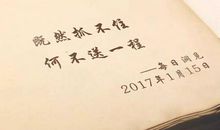 既然抓不住
何不送一程
——每日洞见
2017年1月15日